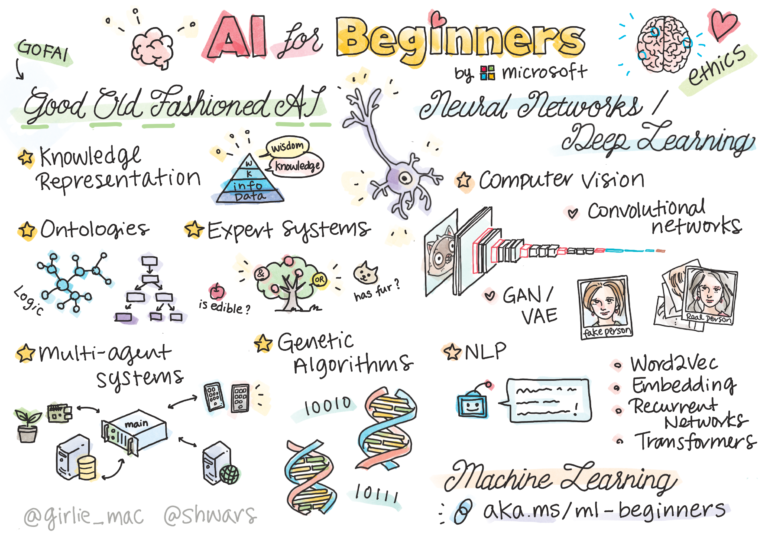 AI for Beginners
by microsoft
GOFAI
ethics
Good Old Fashioned AI
Knowledge
Representation
wisdom
knowledge
W
K
info
Data
Ontologies
Logic
Expert Systems
&
OR
is edible?
has fur?
Multi-agent
systems
main
Genetic
Algorithms
10010
10111
@girlie_mac @shwars
Neural Networks /
Deep Learning
Computer Vision
Convolutional
networks
GAN/
VAE
fake person
Real person
NLP
!
Word2Vec
Embedding
Recurrent
Networks
Transformers
Machine Learning
aka.ms/ml-beginners